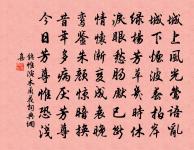 城上風光鶯語亂
城下煙波春拍岸
綠楊芳草幾時休
淚眼愁腸先已斷
情懷漸覺成衰晚
鸞鏡朱顏驚暗換
昔年多病厭芳尊
今日芳尊惟恐淺
錢惟演木蘭花